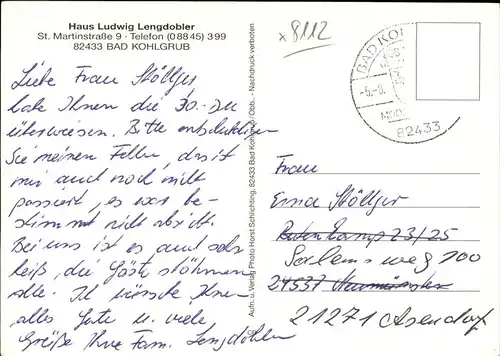 Haus Ludwig Lengdobler
St. Martinstraße 9 · Telefon (0 88 45) 3 99
82433 BAD KOHLGRUB
x 8112
Liebe Frau Stöltger
habe Ihnen die 30.- zu
überweisen. Bitte entschuldigen
Sie meinen Fehler, das ist
mir auch noch nicht
passiert, es war be-
stimmt nicht absicht.
Bei uns ist es auch sehr
heiß, die Gäste stöhnen
alle. Ich wünsche Ihnen
alles Gute u. viele
Grüße Ihre Fam. Lengdobler
Aufn. u. Verlag Photo Horst Schlichting, 82433 Bad Kohlgrub/Obb. - Nachdruck verboten
BAD KOHL
-5.-8.
MOOR
82433
Frau
Erna Stöltger
23/25
weg 100
24537 Neumünster
21271 Asendorf